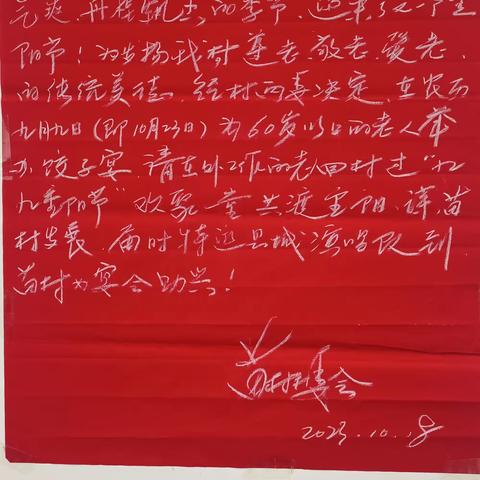 爽,丹桂飘香的季节,迎来了又一个重
阳节!为发扬我村尊老、敬老、爱老,
的传统美德,经村两委决定,在农历
九月九日(即10月23日)为60岁以上的老人举
办饺子宴,请在外工作的老人回村过“九
九重阳节”欢聚一堂共渡重阳,详苗
村发展,届时特邀县城演唱队到
苗村为宴会助兴!
苗村村委会
2023.10.18